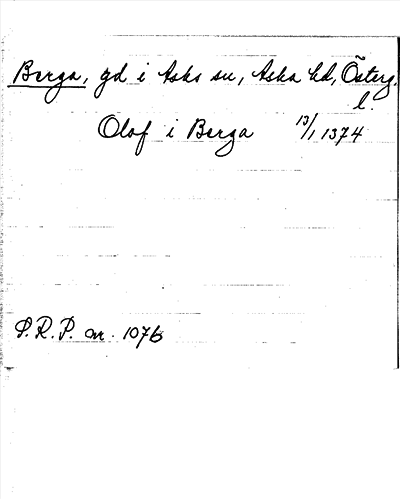 Berga, gd i Asks sn, Aska hd, Österg.
l.
Olof i Berga 13/1 1374
S.R.P. nr. 1076